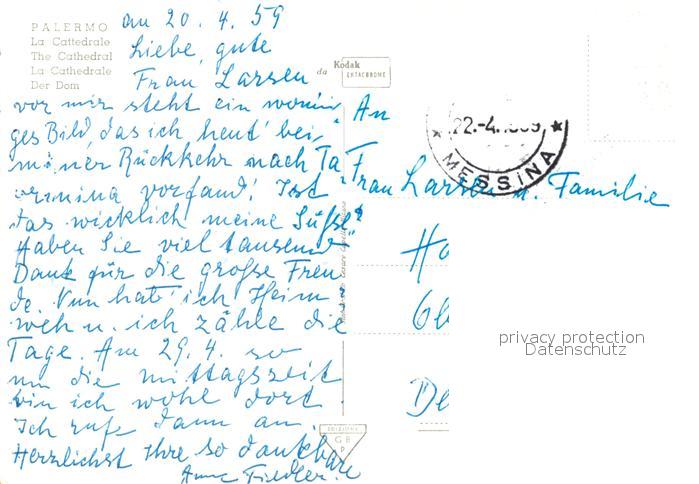 PALERMO
La Cattedrale
The Cathedral
La Cathedrale
Der Dom
an 20. 4. 59
Liebe, gute
Frau Larsen
vor mir steht ein wonni-
ges Bild, das ich heut' bei
meiner Rückkehr nach Ta-
ormina vorfand! Ist
das wirklich meine "Süße"?
Haben Sie viel tausend
Dank für die große Freu-
de. Nun hab' ich Heim-
weh u. ich zähle die
Tage. Am 29.4. so
um die Mittagszeit
bin ich wohl dort.
Ich rufe dann an
Herzlichst Ihre so dankbare
Anne Fiedler.
da Kodak
EKTACHROME
22.-4.
MESSINA
An
Frau Larsen u. Familie
Ha
De
EDIZIONE
G B
P
privacy protection
Datenschutz